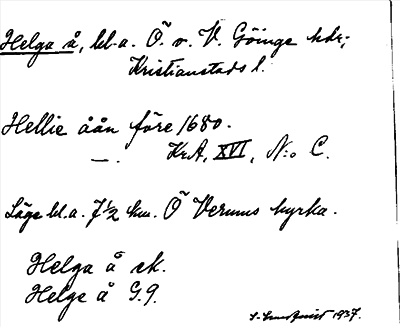 Helga å, bl.a. Ö. o. V. Göinge hdr;
Kristianstads l.
Hellie åån före 1680.
—. KrA, XVI, N:o C.
Läge bl.a. 7 1/2 km. Ö Verums kyrka.
Helga å ek.
Helge å G.9.
S. Lundquist 1937.